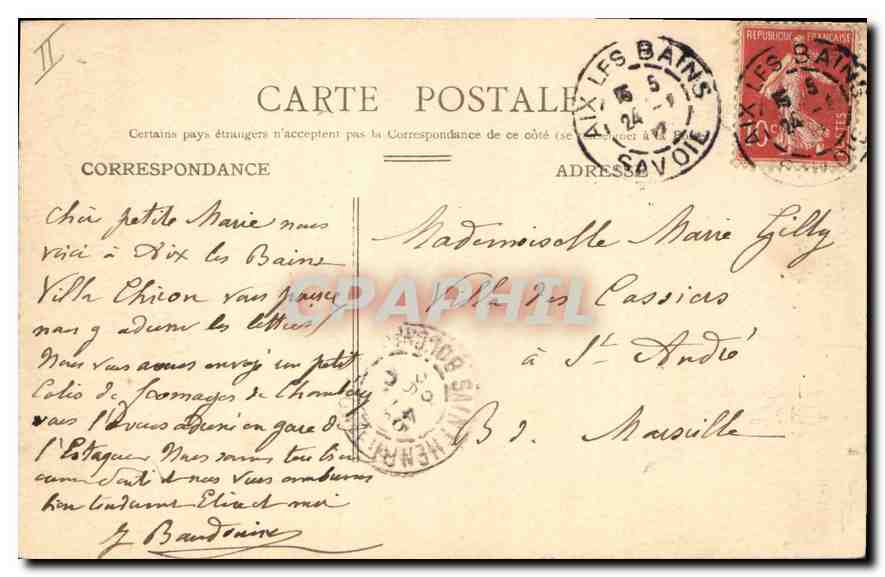 II
CARTE POSTALE
Certains pays étrangers n'acceptent pas la Correspondance de ce côté (se à la
CORRESPONDANCE
ADRESSE
AIX LES BAINS
SAVOIE
15 5
24
REPUBLIQUE FRANÇAISE
10
POSTES
AIX LES BAINS
Chère petite Marie nous
voici à Aix les Bains
Villa Chiron vous pouvez
nous y adresser les lettres
Nous vous avons envoyé un petit
Colis de fromages de Chambéry
vous l'avons adressé en gare de
l'Estaque Nous sommes tous bien
santé et nous vous embrassons
bien tendrement Elise et moi
Baudouin
Mademoiselle Marie Gilly
Villa des Cassiers
à St. André
B. d. Marseille
SAINT HENRI
CPAPHIL